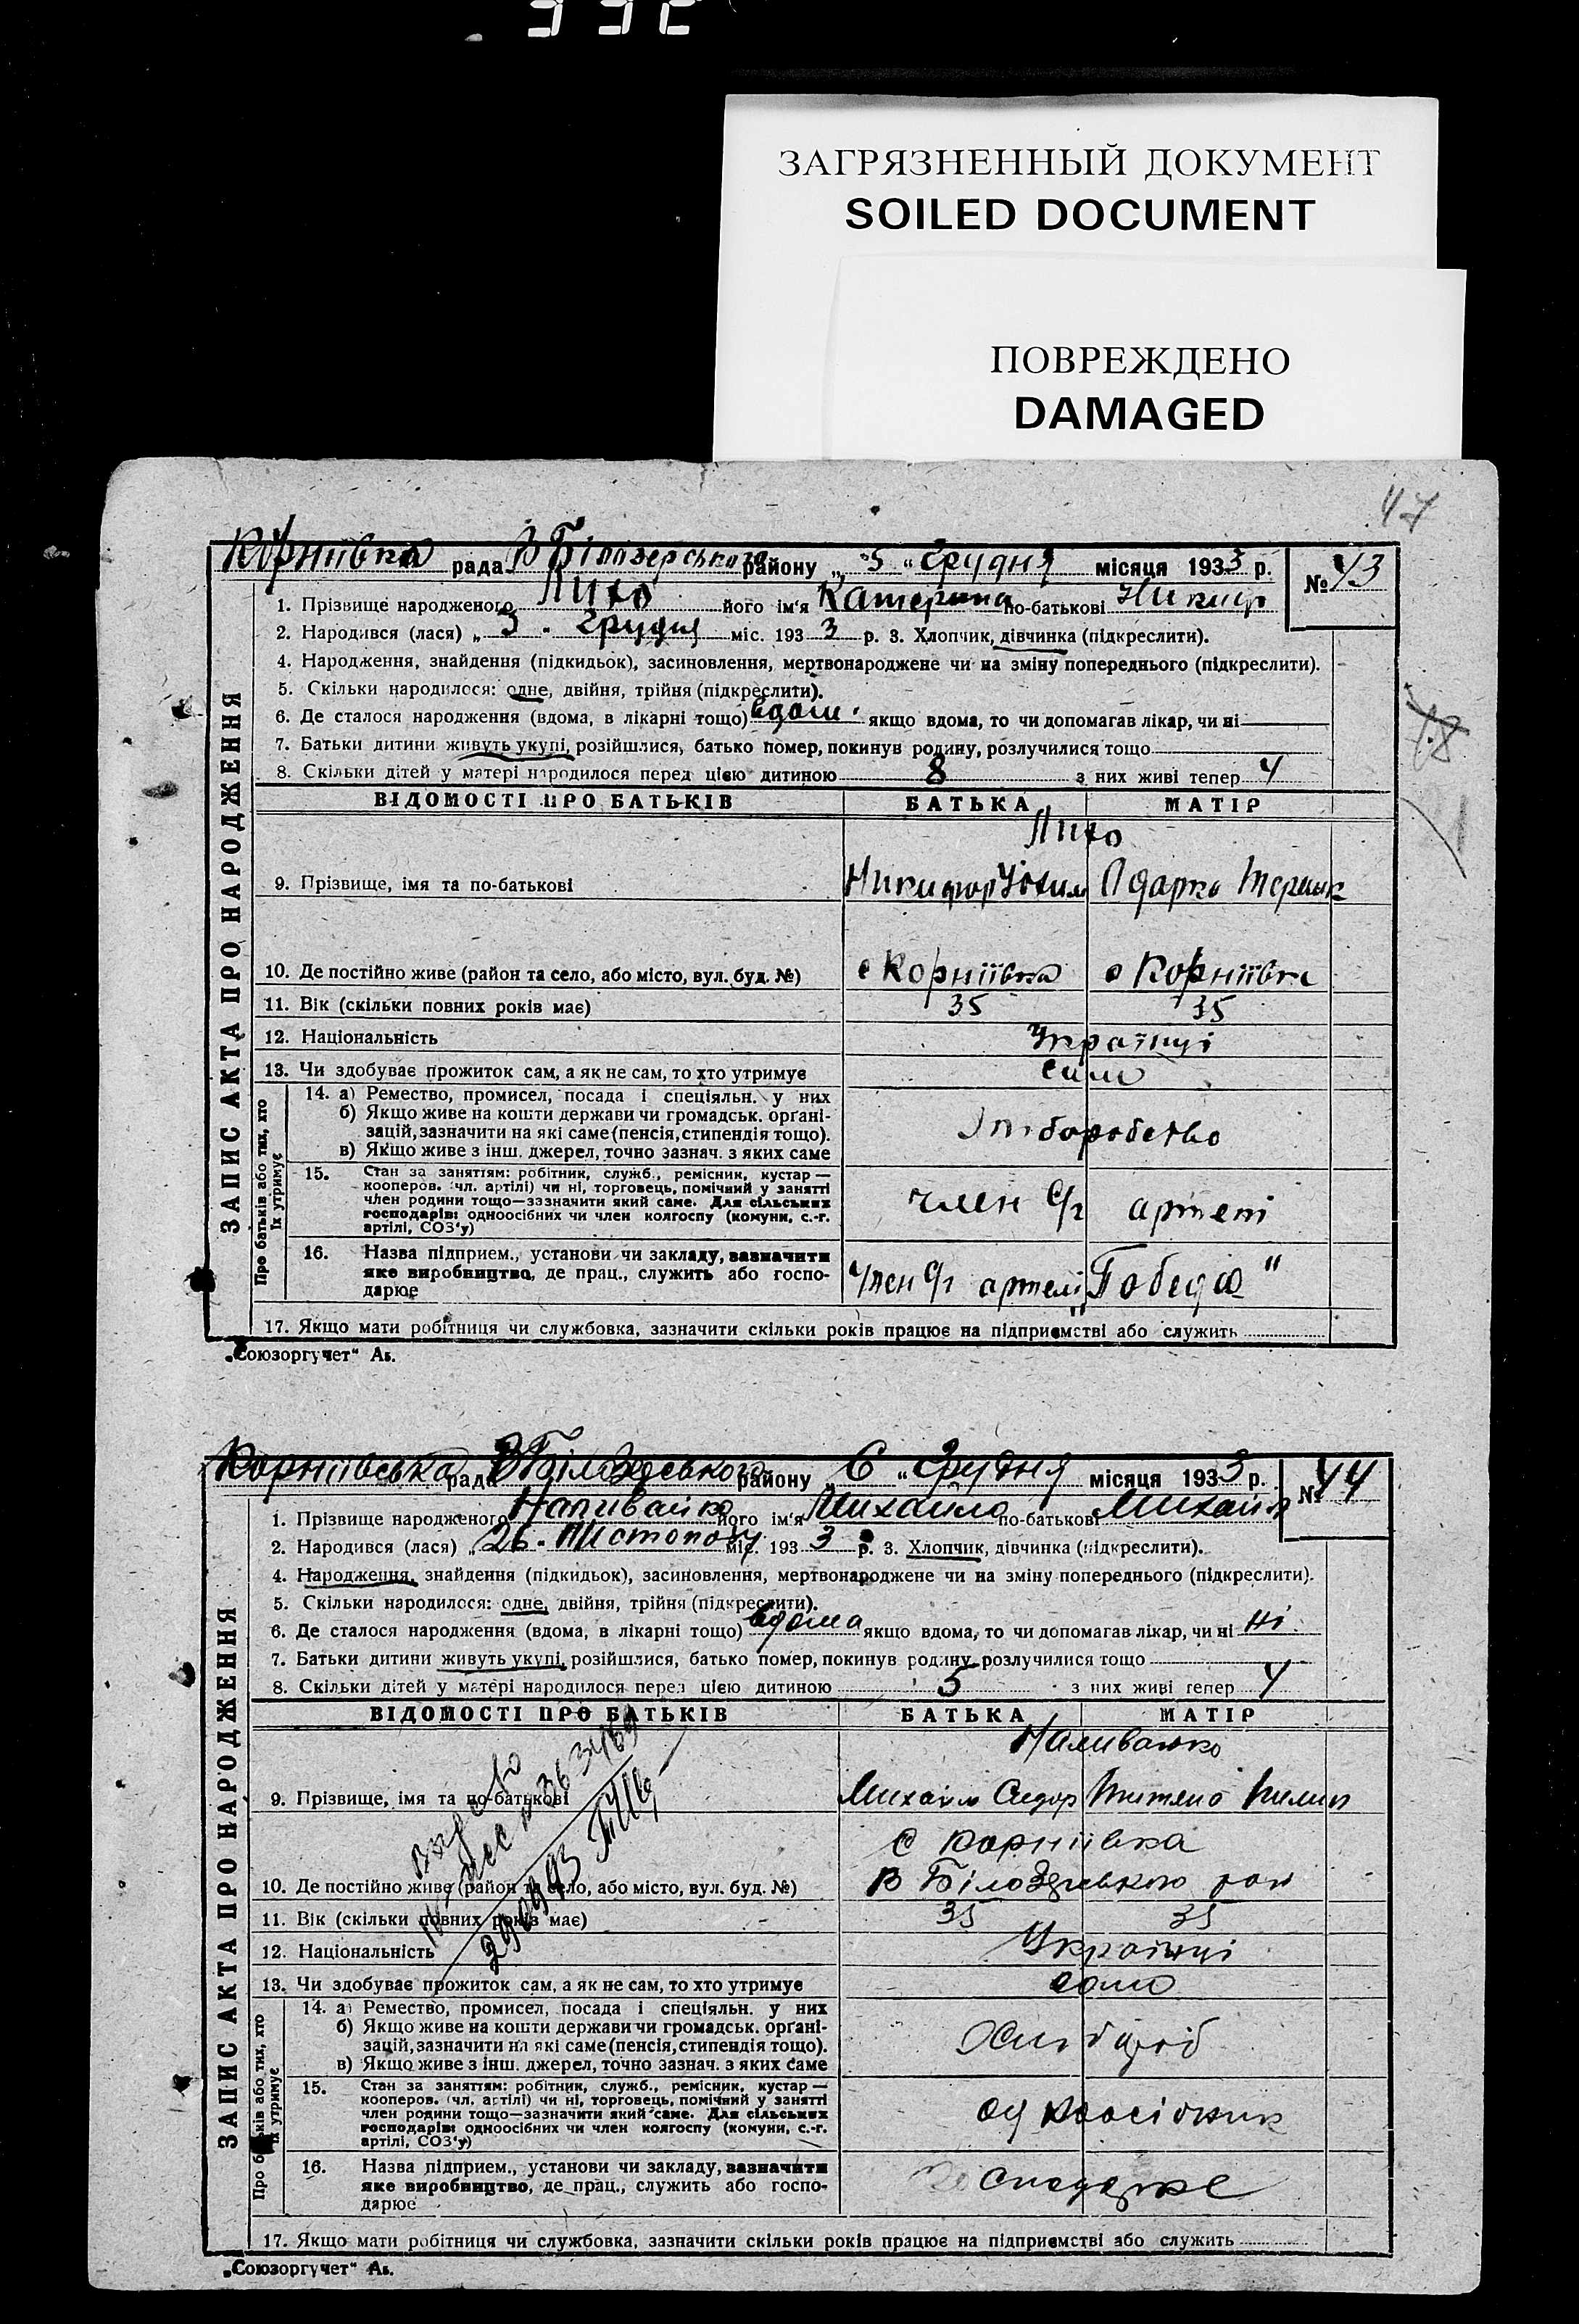 ЗАГРЯЗНЕННЫЙ ДОКУМЕНТ
SOILED DOCUMENT
ПОВРЕЖДЕНО
DAMAGED
47
Корніївка рада В Білозерського району „ 5 " Грудня місяця 1933 р. № 43
1. Прізвище народженого Лихо його ім'я Катерина по-батькові Никиф
2. Народився (лася) „ 3 " Грудня міс. 193 3 р. 3. Хлопчик, дівчинка (підкреслити).
4. Народження, знайдення (підкидьок), засиновлення, мертвонароджене чи на зміну попереднього (підкреслити).
5. Скільки народилося: одне, двійня, трійня (підкреслити).
6. Де сталося народження (вдома, в лікарні тощо) вдома якщо вдома, то чи допомагав лікар, чи ні
7. Батьки дитини живуть укупі, розійшлися, батько помер, покинув родину, розлучилися тощо
8. Скільки дітей у матері народилося перед цією дитиною 8 з них живі тепер 4
ЗАПИС АКТА ПРО НАРОДЖЕННЯ
ВІДОМОСТІ ПРО БАТЬКІВ БАТЬКА МАТІР
Лихо
9. Прізвище, імя та по-батькові Никифор Юхим Одарка
10. Де постійно живе (район та село, або місто, вул. буд. №) с Корніївка с Корніївка
11. Вік (скільки повних років має) 35 35
12. Національність Українці
13. Чи здобуває прожиток сам, а як не сам, то хто утримує сами
Про батьків або тих, хто їх утримує
14. а) Ремество, промисел, посада і спеціяльн. у них
б) Якщо живе на кошти держави чи громадськ. орґані-
зацій, зазначити на які саме (пенсія, стипендія тощо).
в) Якщо живе з інш. джерел, точно зазнач. з яких саме
15. Стан за заняттям: робітник, служб., ремісник, кустар —
кооперов. (чл. артілі) чи ні, торговець, помічний у занятті
член родини тощо—зазначити який саме. Для сільських
господарів: одноосібних чи член колгоспу (комуни, с.-г.
артілі, СОЗ'у)
член с/г артелі
16. Назва підприєм., установи чи закладу, вазначити
яке виробництво, де прац., служить або госпо-
дарює
Член с/г артелі „Победа"
17. Якщо мати робітниця чи службовка, зазначити скільки років працює на підприємстві або служить
„Союзоргучет" Аь.
Корніївська рада В Білозерського району „ 6 " Грудня місяця 1933 р. № 44
1. Прізвище народженого Наливайко його ім'я Михайло по-батькові Михайл
2. Народився (лася) „ 26 " Листопаду міс. 193 3 р. 3. Хлопчик, дівчинка (підкреслити).
4. Народження, знайдення (підкидьок), засиновлення, мертвонароджене чи на зміну попереднього (підкреслити).
5. Скільки народилося: одне, двійня, трійня (підкреслити).
6. Де сталося народження (вдома, в лікарні тощо) вдома якщо вдома, то чи допомагав лікар, чи ні ні
7. Батьки дитини живуть укупі, розійшлися, батько помер, покинув родину, розлучилися тощо
8. Скільки дітей у матері народилося перед цією дитиною 5 з них живі тепер 4
ЗАПИС АКТА ПРО НАРОДЖЕННЯ
ВІДОМОСТІ ПРО БАТЬКІВ БАТЬКА МАТІР
Наливайко
9. Прізвище, імя та по-батькові Михайл Сидор
с Корніївка
10. Де постійно живе (район та село, або місто, вул. буд. №) В Білозерського рай
11. Вік (скільки повних років має) 35 35
12. Національність Українці
13. Чи здобуває прожиток сам, а як не сам, то хто утримує само
Про батьків або тих, хто їх утримує
14. а) Ремество, промисел, посада і спеціяльн. у них
б) Якщо живе на кошти держави чи громадськ. орґані-
зацій, зазначити на які саме (пенсія, стипендія тощо).
в) Якщо живе з інш. джерел, точно зазнач. з яких саме
Хлібороб
15. Стан за заняттям: робітник, служб., ремісник, кустар —
кооперов. (чл. артілі) чи ні, торговець, помічний у занятті
член родини тощо—зазначити який саме. Для сільських
господарів: одноосібних чи член колгоспу (комуни, с.-г.
артілі, СОЗ'у)
16. Назва підприєм., установи чи закладу, вазначити
яке виробництво, де прац., служить або госпо-
дарює
17. Якщо мати робітниця чи службовка, зазначити скільки років працює на підприємстві або служить
„Союзоргучет" Аь.